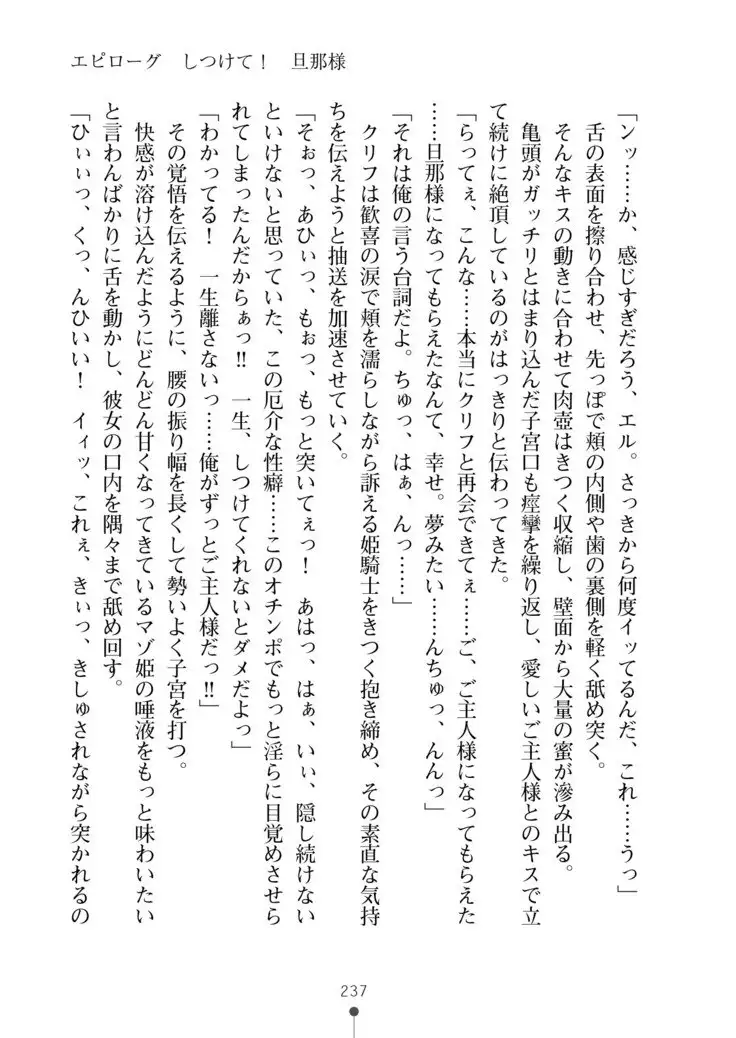 エピローグ　しつけて！　旦那様
「ンッ……か、感じすぎだろう、エル。さっきから何度イッてるんだ、これ……うっ」
舌の表面を擦り合わせ、先っぽで頬の内側や歯の裏側を軽く舐め突く。
そんなキスの動きに合わせて肉壺はきつく収縮し、壁面から大量の蜜が滲み出る。
亀頭がガッチリとはまり込んだ子宮口も痙攣を繰り返し、愛しいご主人様とのキスで立
て続けに絶頂しているのがはっきりと伝わってきた。
「らってぇ、こんな……本当にクリフと再会できてぇ……ご、ご主人様になってもらえた
……旦那様になってもらえたなんて、幸せ。夢みたい……んちゅっ、んんっ」
「それは俺の言う台詞だよ。ちゅっ、はぁ、んっ……」
クリフは歓喜の涙で頬を濡らしながら訴える姫騎士をきつく抱き締め、その素直な気持
ちを伝えようと抽送を加速させていく。
「そぉっ、あひぃっ、もぉっ、もっと突いてぇっ！　あはっ、はぁ、いぃ、隠し続けない
といけないと思っていた、この厄介な性癖……このオチンポでもっと淫らに目覚めさせら
れてしまったんだからぁっ‼　一生、しつけてくれないとダメだよっ」
「わかってる！　一生離さないっ……俺がずっとご主人様だっ‼」
その覚悟を伝えるように、腰の振り幅を長くして勢いよく子宮を打つ。
快感が溶け込んだようにどんどん甘くなってきているマゾ姫の唾液をもっと味わいたい
と言わんばかりに舌を動かし、彼女の口内を隅々まで舐め回す。
「ひぃぃっ、くっ、んひいい！　イィッ、これぇ、きぃっ、きしゅされながら突かれるの
237